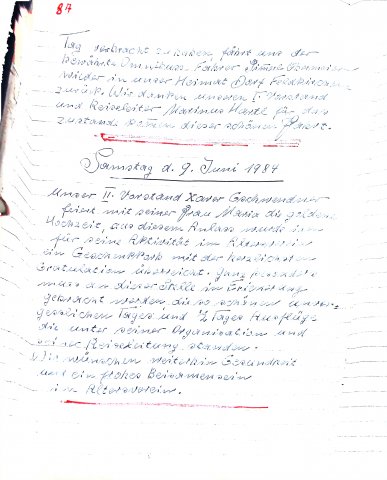 84
Tag verbracht zu haben fährt uns der
bewährte Omnibuss-Fahrer
wieder in unser Heimat Dorf Feldkirchen
zurück. Wir danken unseren I. Vorstand
und Reiseleiter Martinus Hartl für das
zustand kommen dieser schönen Fahrt.
Samstag d. 9. Juni 1984
Unser II. Vorstand Xaver Gschwendner
feiert mit seiner Frau Maria die goldene
Hochzeit, aus diesem Anlass wurde im
für seine Aktivität im Altersverein
ein Geschenkkorb mit der herzlichsten
Gratulation überreicht. Ganz besonders
muss an dieser Stelle in Erinnerung
gebracht werden die so schönen unver-
gesslichen Tages und 2 Tages Ausflüge
die unter seiner Organisation und
seiner Reiseleitung standen.
Wir wünschen weiterhin Gesundheit
und ein frohes Beisammensein
im Altersverein.